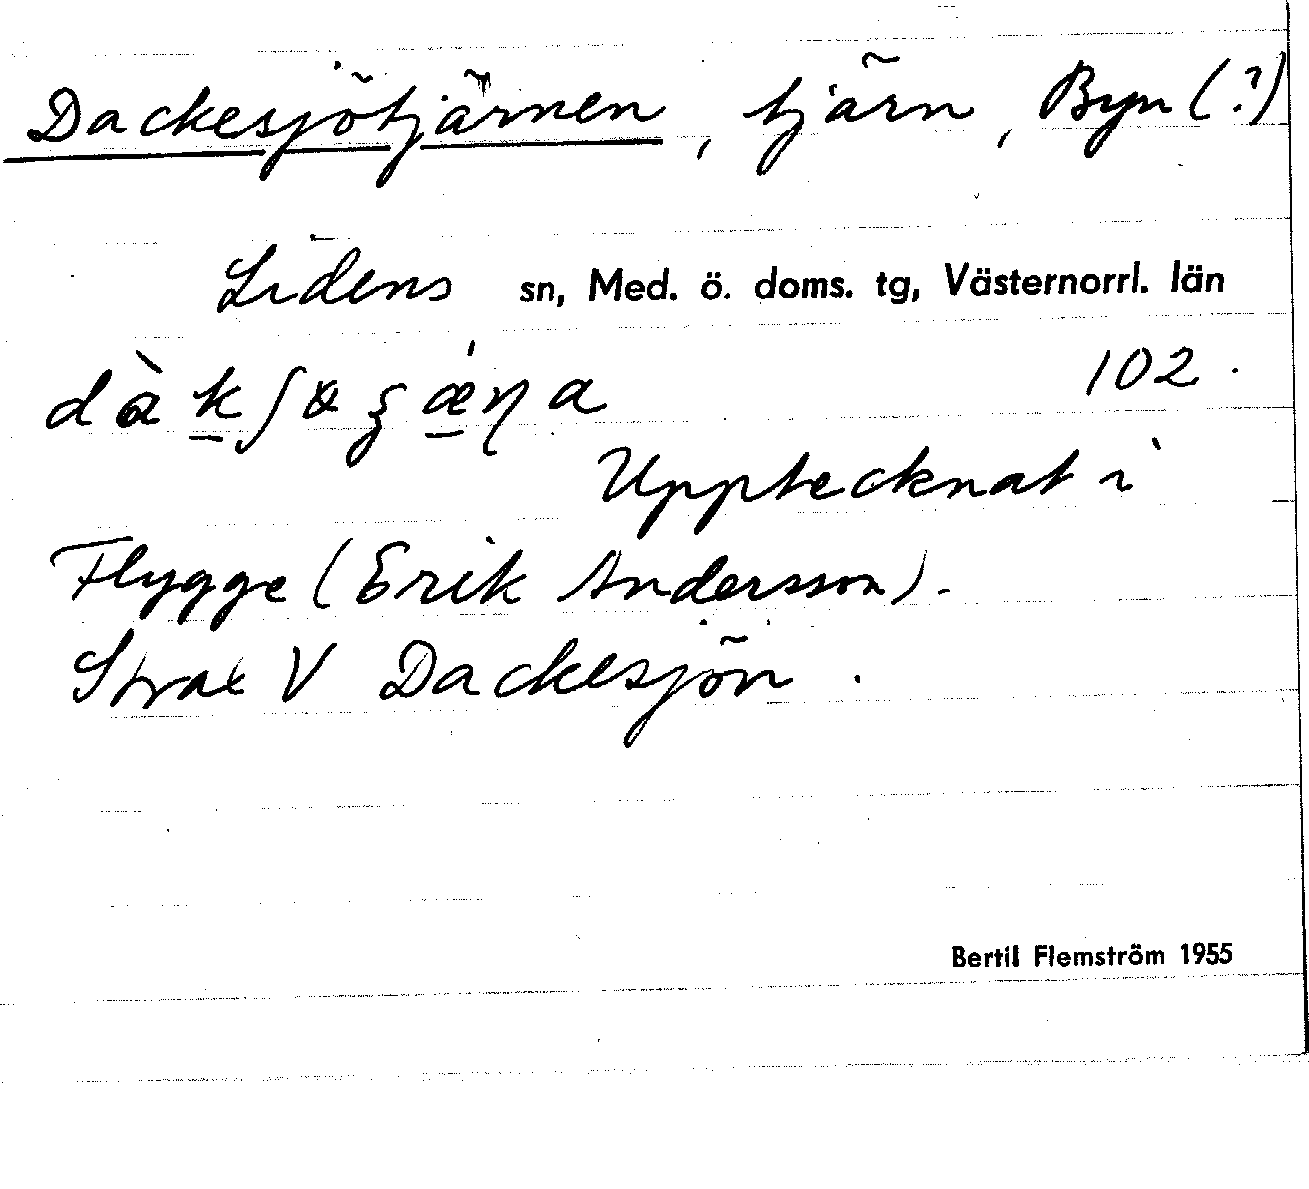 Dackesjötjärnen, tjärn, Byn (?)
Lidens sn, Med. ö. doms. tg, Västernorrl. län
102.
Upptecknat i
Flygge (Erik Andersson).
Strax V Dackesjön.
Bertil Flemström 1955